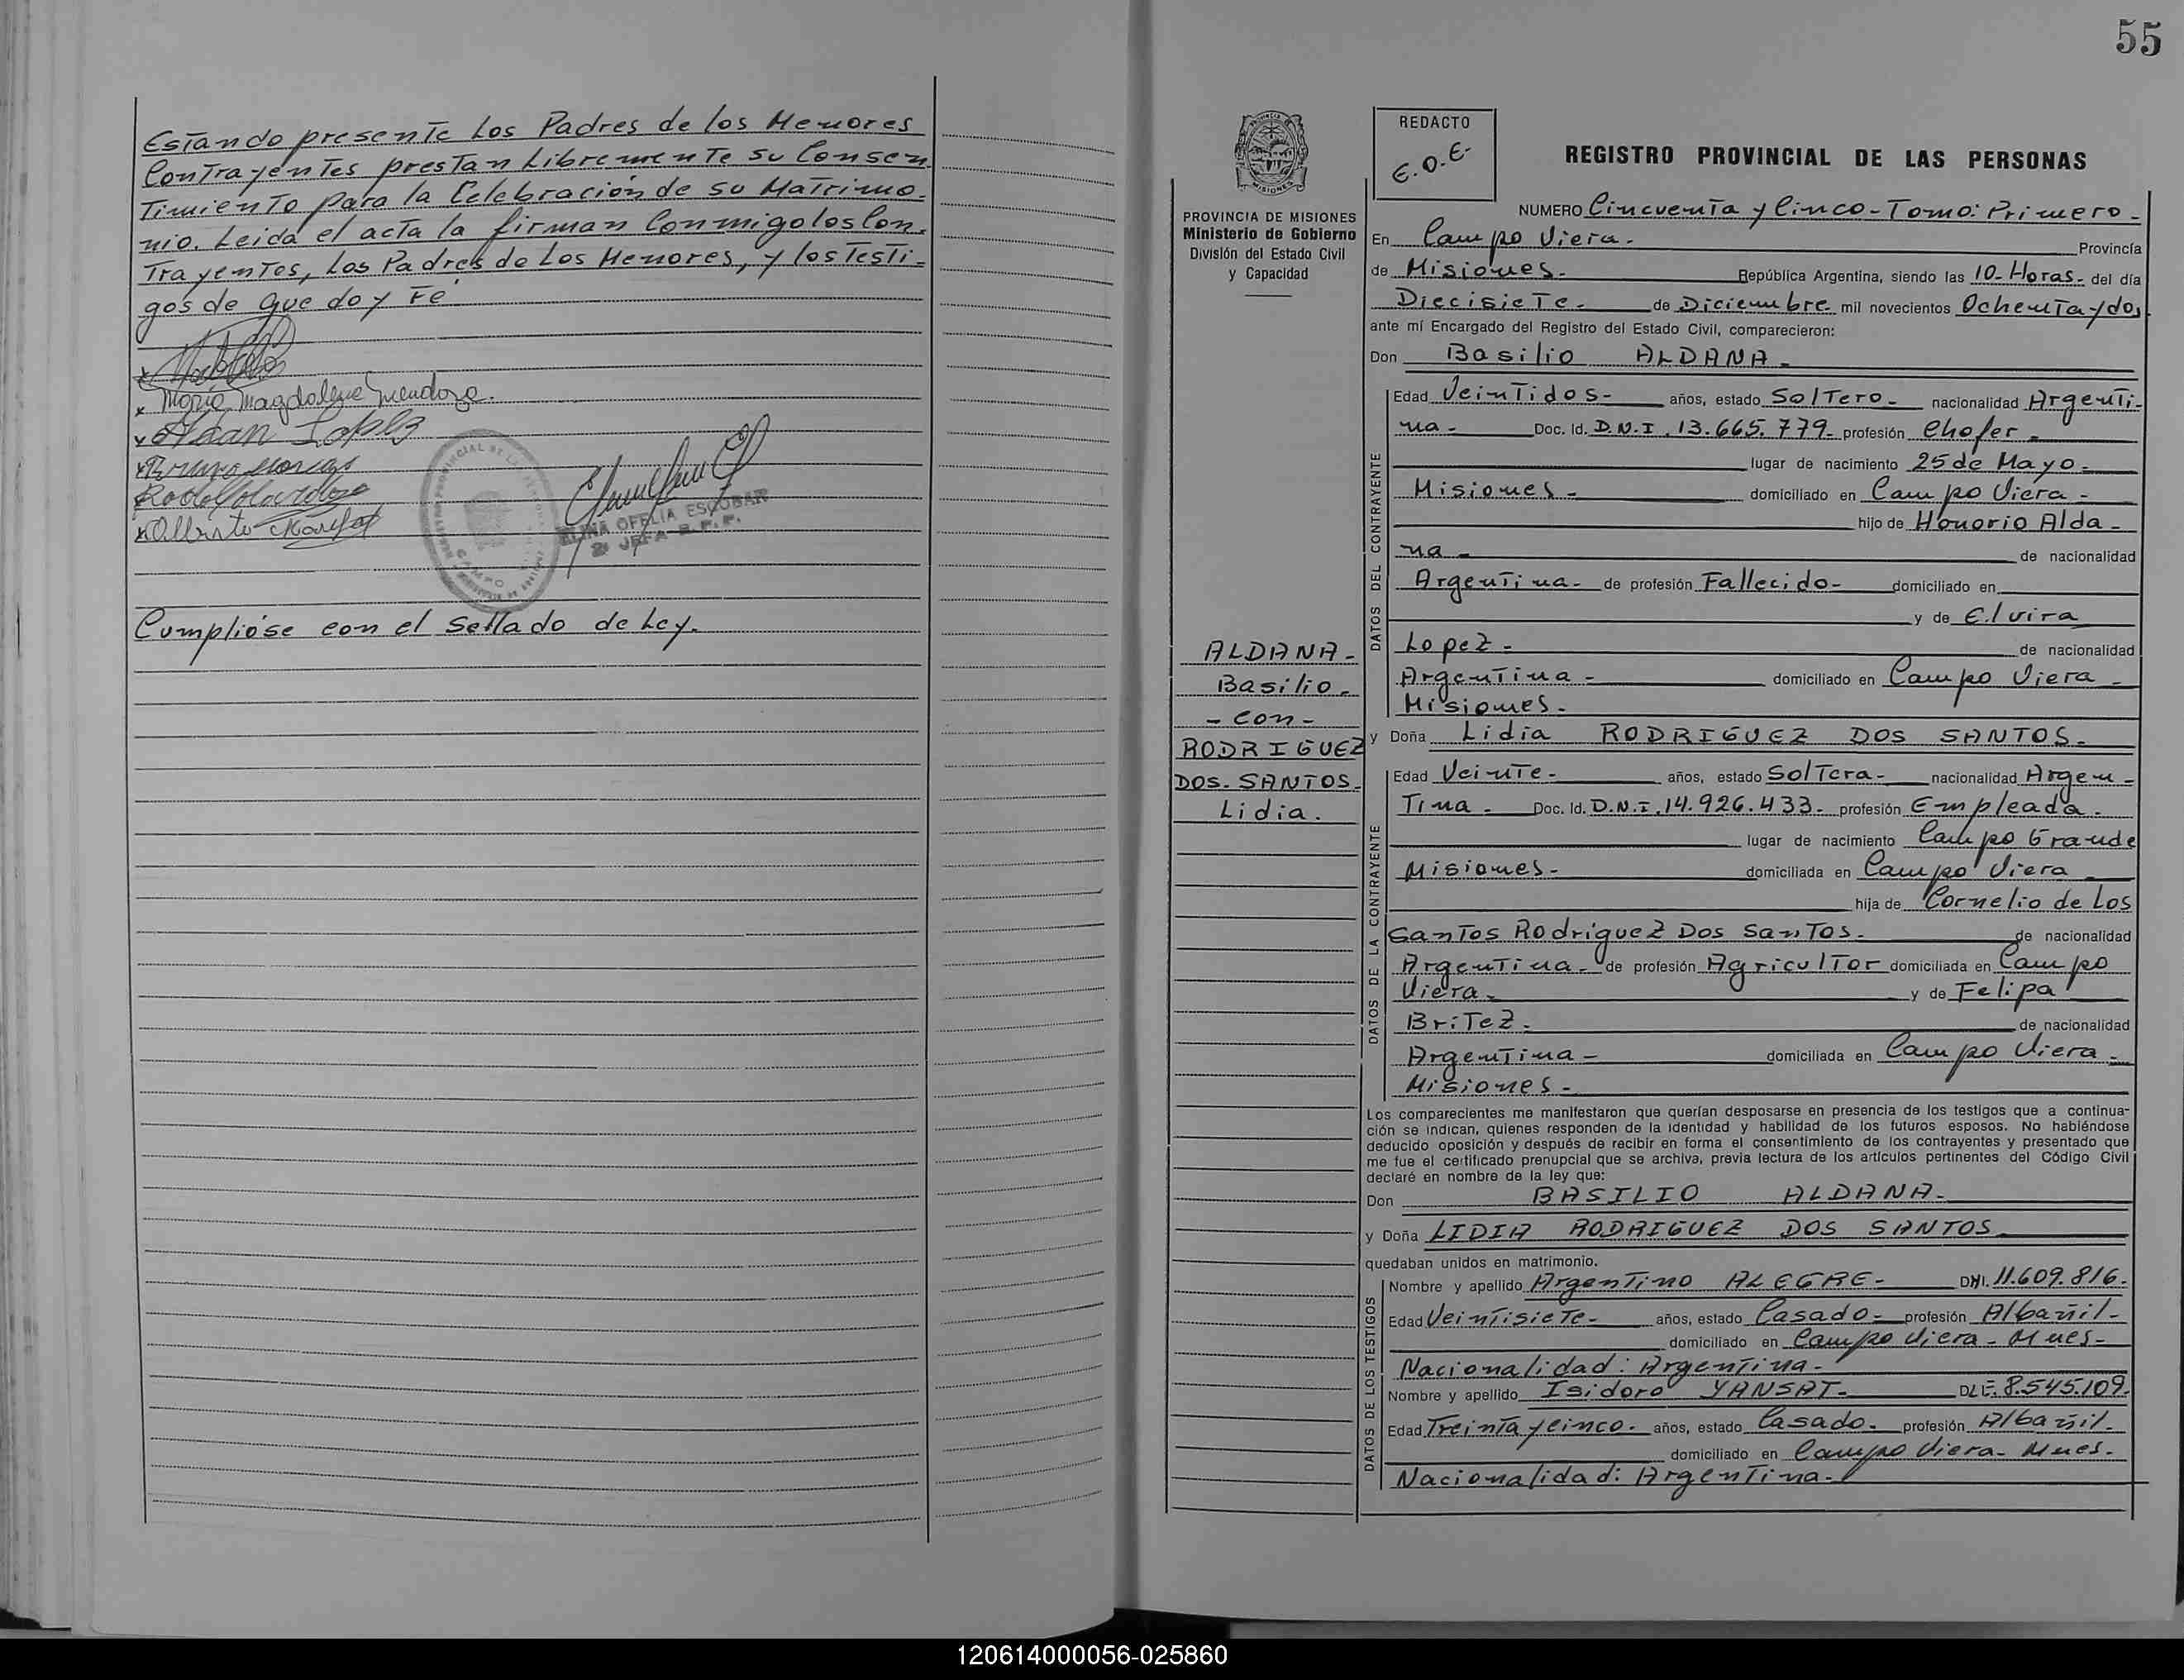 Estando presente Los Padres de los Menores
Contrayentes prestan Libremente su Consen-
Timiento para la Celebración de su Matrimo-
nio. Leida el acta la firman Conmigo los Con-
Trayentes, Los Padres de Los Menores, y los Testi-
gos de que doy Fé
x Maria Magdalena Mendoza.
x Adan Lopez
PROVINCIAL DE LA
CAMPO
ELINA OFELIA ESCOBAR
Cumplióse con el Sellado de Ley.
55
REDACTO
E.O.E-
REGISTRO PROVINCIAL DE LAS PERSONAS
PROVINCIA DE MISIONES
Ministerio de Gobierno
División del Estado Civil
y Capacidad
ALDANA-
Basilio-
- con -
RODRIGUEZ
DOS. SANTOS-
Lidia.
NUMERO Cincuenta y Cinco- Tomo: Primero-
En Campo Viera- Provincia
de Misiones- República Argentina, siendo las 10- Horas- del día
Diecisiete- de Diciembre- mil novecientos Ochenta y dos
ante mí Encargado del Registro del Estado Civil, comparecieron:
Don Basilio ALDANA-
DATOS DEL CONTRAYENTE
Edad Veintidos- años, estado Soltero- nacionalidad Argenti-
na- Doc. Id. D.N.I. 13.665.779- profesión Chofer-
lugar de nacimiento 25 de Mayo-
Misiones- domiciliado en Campo Viera-
hijo de Honorio Alda-
na- de nacionalidad
Argentina- de profesión Fallecido- domiciliado en
y de Elvira
Lopez- de nacionalidad
Argentina- domiciliado en Campo Viera-
Misiones-
y Doña Lidia RODRIGUEZ DOS SANTOS-
DATOS DE LA CONTRAYENTE
Edad Veinte- años, estado Soltera- nacionalidad Argen-
Tina- Doc. Id. D.N.I. 14.926.433- profesión Empleada-
lugar de nacimiento Campo Grande
Misiones- domiciliada en Campo Viera-
hija de Cornelio de Los
Santos Rodriguez Dos Santos- de nacionalidad
Argentina- de profesión Agricultor domiciliada en Campo
Viera- y de Felipa
Britez- de nacionalidad
Argentina- domiciliada en Campo Viera-
Misiones-
Los comparecientes me manifestaron que querían desposarse en presencia de los testigos que a continua-
ción se indican, quienes responden de la identidad y habilidad de los futuros esposos. No habiéndose
deducido oposición y después de recibir en forma el consentimiento de los contrayentes y presentado que
me fue el certificado prenupcial que se archiva, previa lectura de los artículos pertinentes del Código Civil
declaré en nombre de la ley que:
Don BASILIO ALDANA-
y Doña LIDIA RODRIGUEZ DOS SANTOS
quedaban unidos en matrimonio.
DATOS DE LOS TESTIGOS
Nombre y apellido Argentino ALEGRE- DNI. 11.609.816-
Edad Veintisiete- años, estado Casado- profesión Albañil-
domiciliado en Campo Viera- Mnes-
Nacionalidad: Argentina-
Nombre y apellido Isidoro YANSAT- DLE. 8.545.109-
Edad Treinta y cinco- años, estado Casado- profesión Albañil-
domiciliado en Campo Viera- Mnes-
Nacionalidad: Argentina-
120614000056-025860